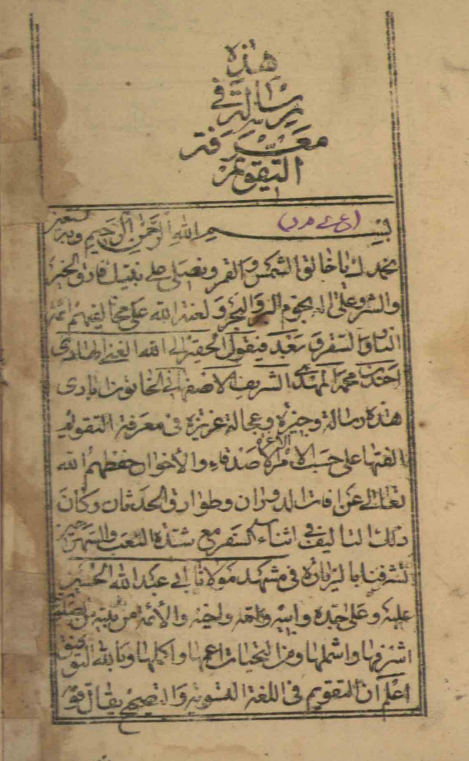 هذه
رسالة في
معرفة
التقويم
(عربي)
بسم الله الرحمن الرحيم وبه نستعين
نحمدك يا خالق الشمس والقمر ونصلي على نبيك فارق الخير
والشر وعلى اله نجوم البر والبحر ولعنة الله على مخالفيهم
النار والسقر وبعد فيقول الحقير الى الله الغني الهادي
محمد المهدي الشريف الاصفهاني الخاتون ابادى
هذه رسالة وجيزة وعجالة عزيزة فى معرفة التقويم
الفتها على حسب الامر الاصدقاء والأخوان حفظهم الله
تعالى عن افات الدوران وطوارق الحدثان وكان
ذلك التاليف في اثناء السفر مع شدة التعب والسهر حين
تشرفنا بالزيارة فى مشهد مولانا ابى عبد الله الحسين
عليه وعلى جده وابيه وامه واخيه والأئمة من بنيه من
اشرفها واشملها ومن التحيات اعمها واكملها وبالله التوفيق
اعلم ان التقويم فى اللغة التسوية والتصحيح يقال